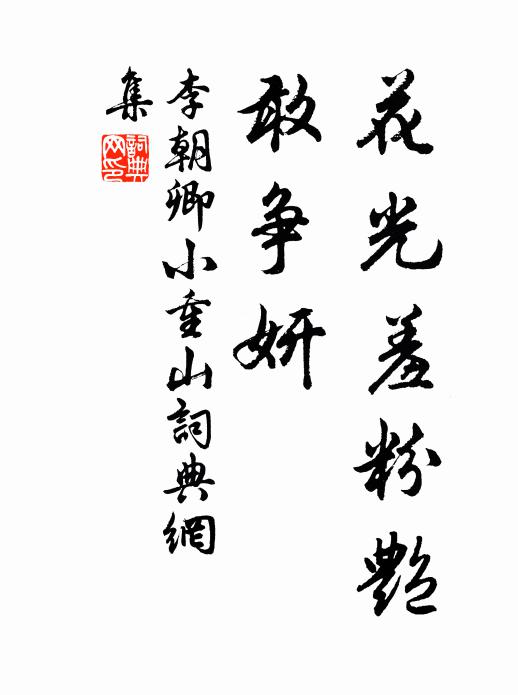 花光羞粉艷
敢争妍
李朝卿小重山詞典網
集
詞典
网印